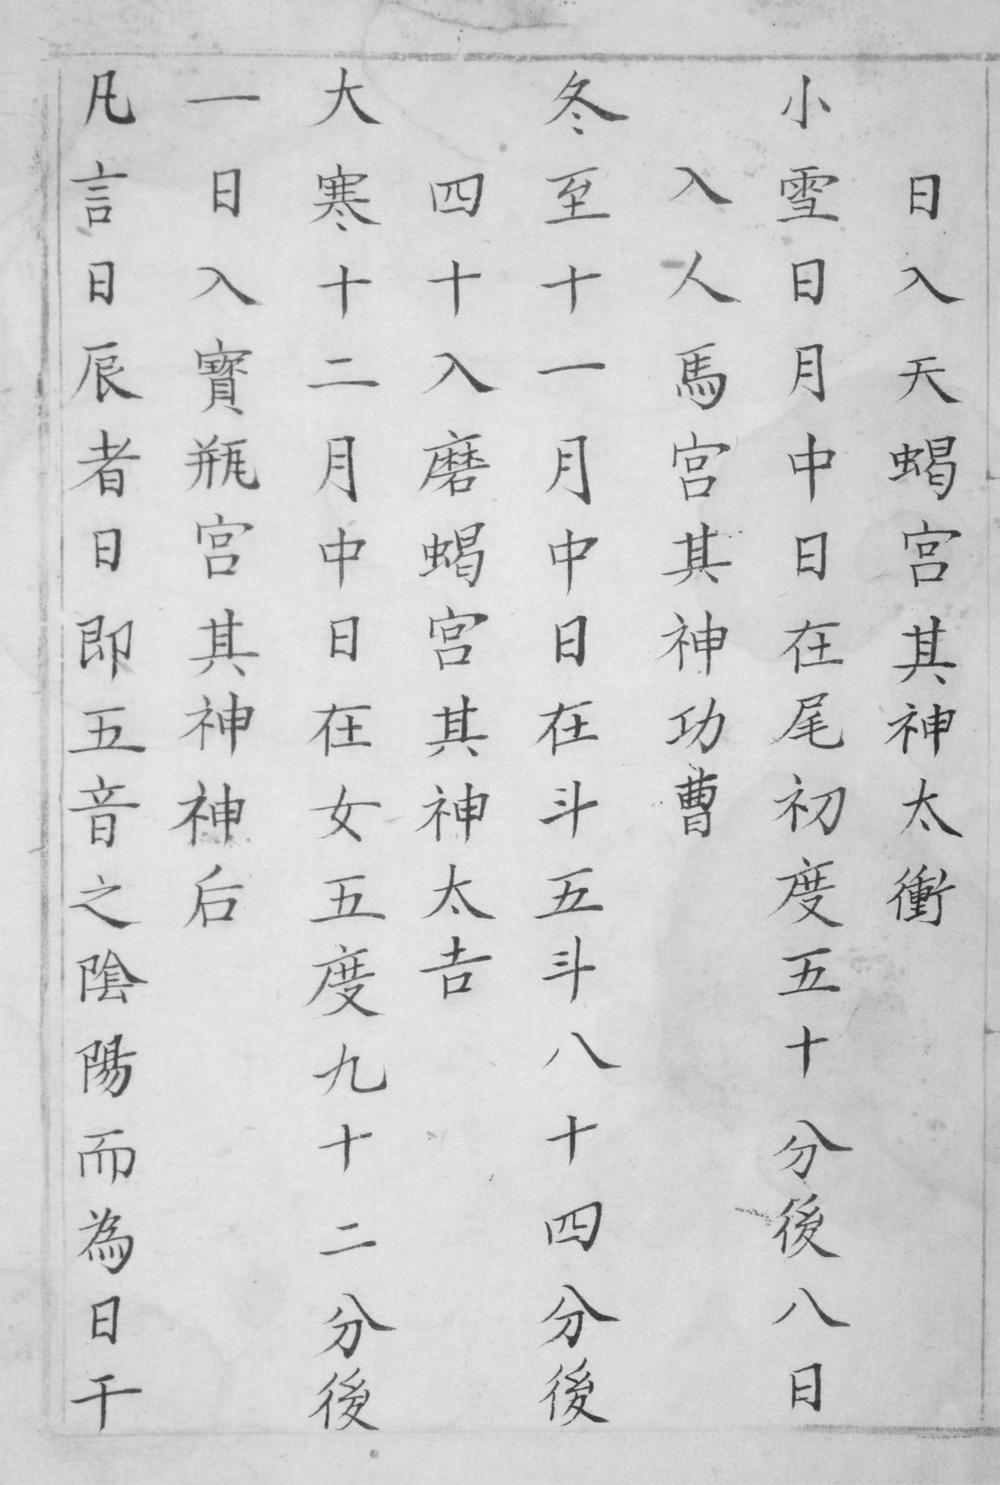 日入天蝎宮其神太衝
小雪日月中日在尾初度五十分後八日
入人馬宮其神功曹
冬至十一月中日在斗五斗八十四分後
四十入磨蝎宮其神太吉
大寒十二月中日在女五度九十二分後
一日入寳瓶宮其神神后
凡言日辰者日即五音之陰陽而為日干